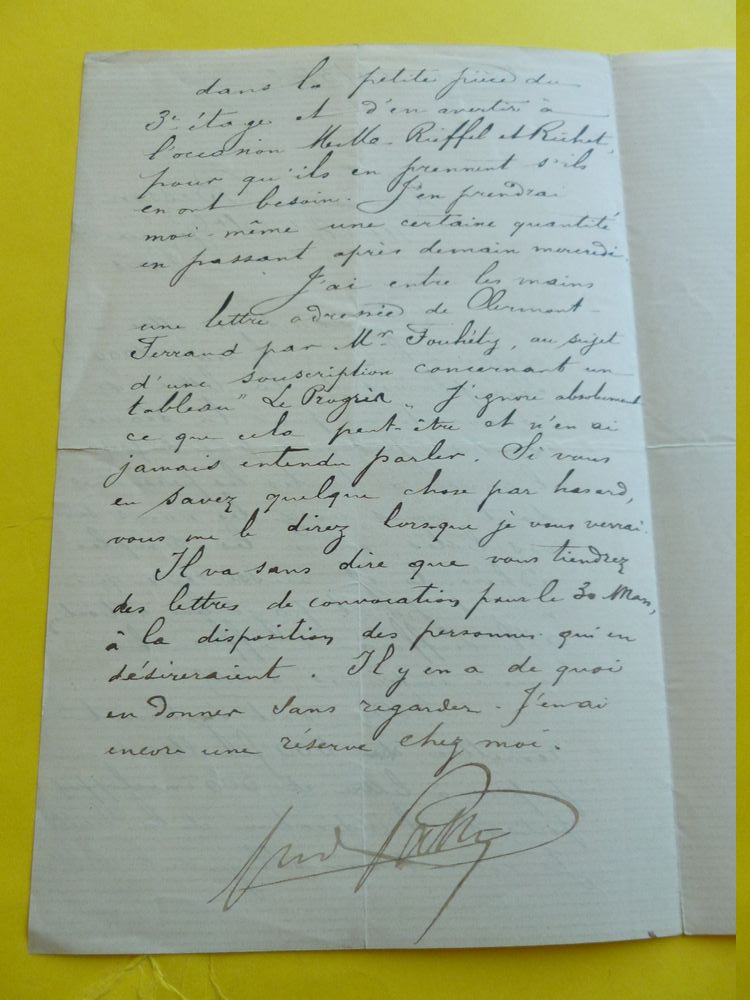 dans la petite pièce du
3e étage et d'en avertir à
l'occasion MM. Rieffel et Richet,
pour qu'ils en prennent s'ils
en ont besoin. J'en prendrai
moi-même une certaine quantité
en passant après demain mercredi.
J'ai entre les mains
une lettre adressée de Clermont-
Ferrand par Mr, au sujet
d'une souscription concernant un
tableau "Le Progrès". J'ignore absolument
ce que cela peut-être et n'en ai
jamais entendu parler. Si vous
en savez quelque chose par hasard,
vous me le direz lorsque je vous verrai.
Il va sans dire que vous tiendrez
des lettres de convocation pour le 30 Mars,
à la disposition des personnes qui en
désireraient. Il y en a de quoi
en donner sans regarder. J'en ai
encore une réserve chez moi.